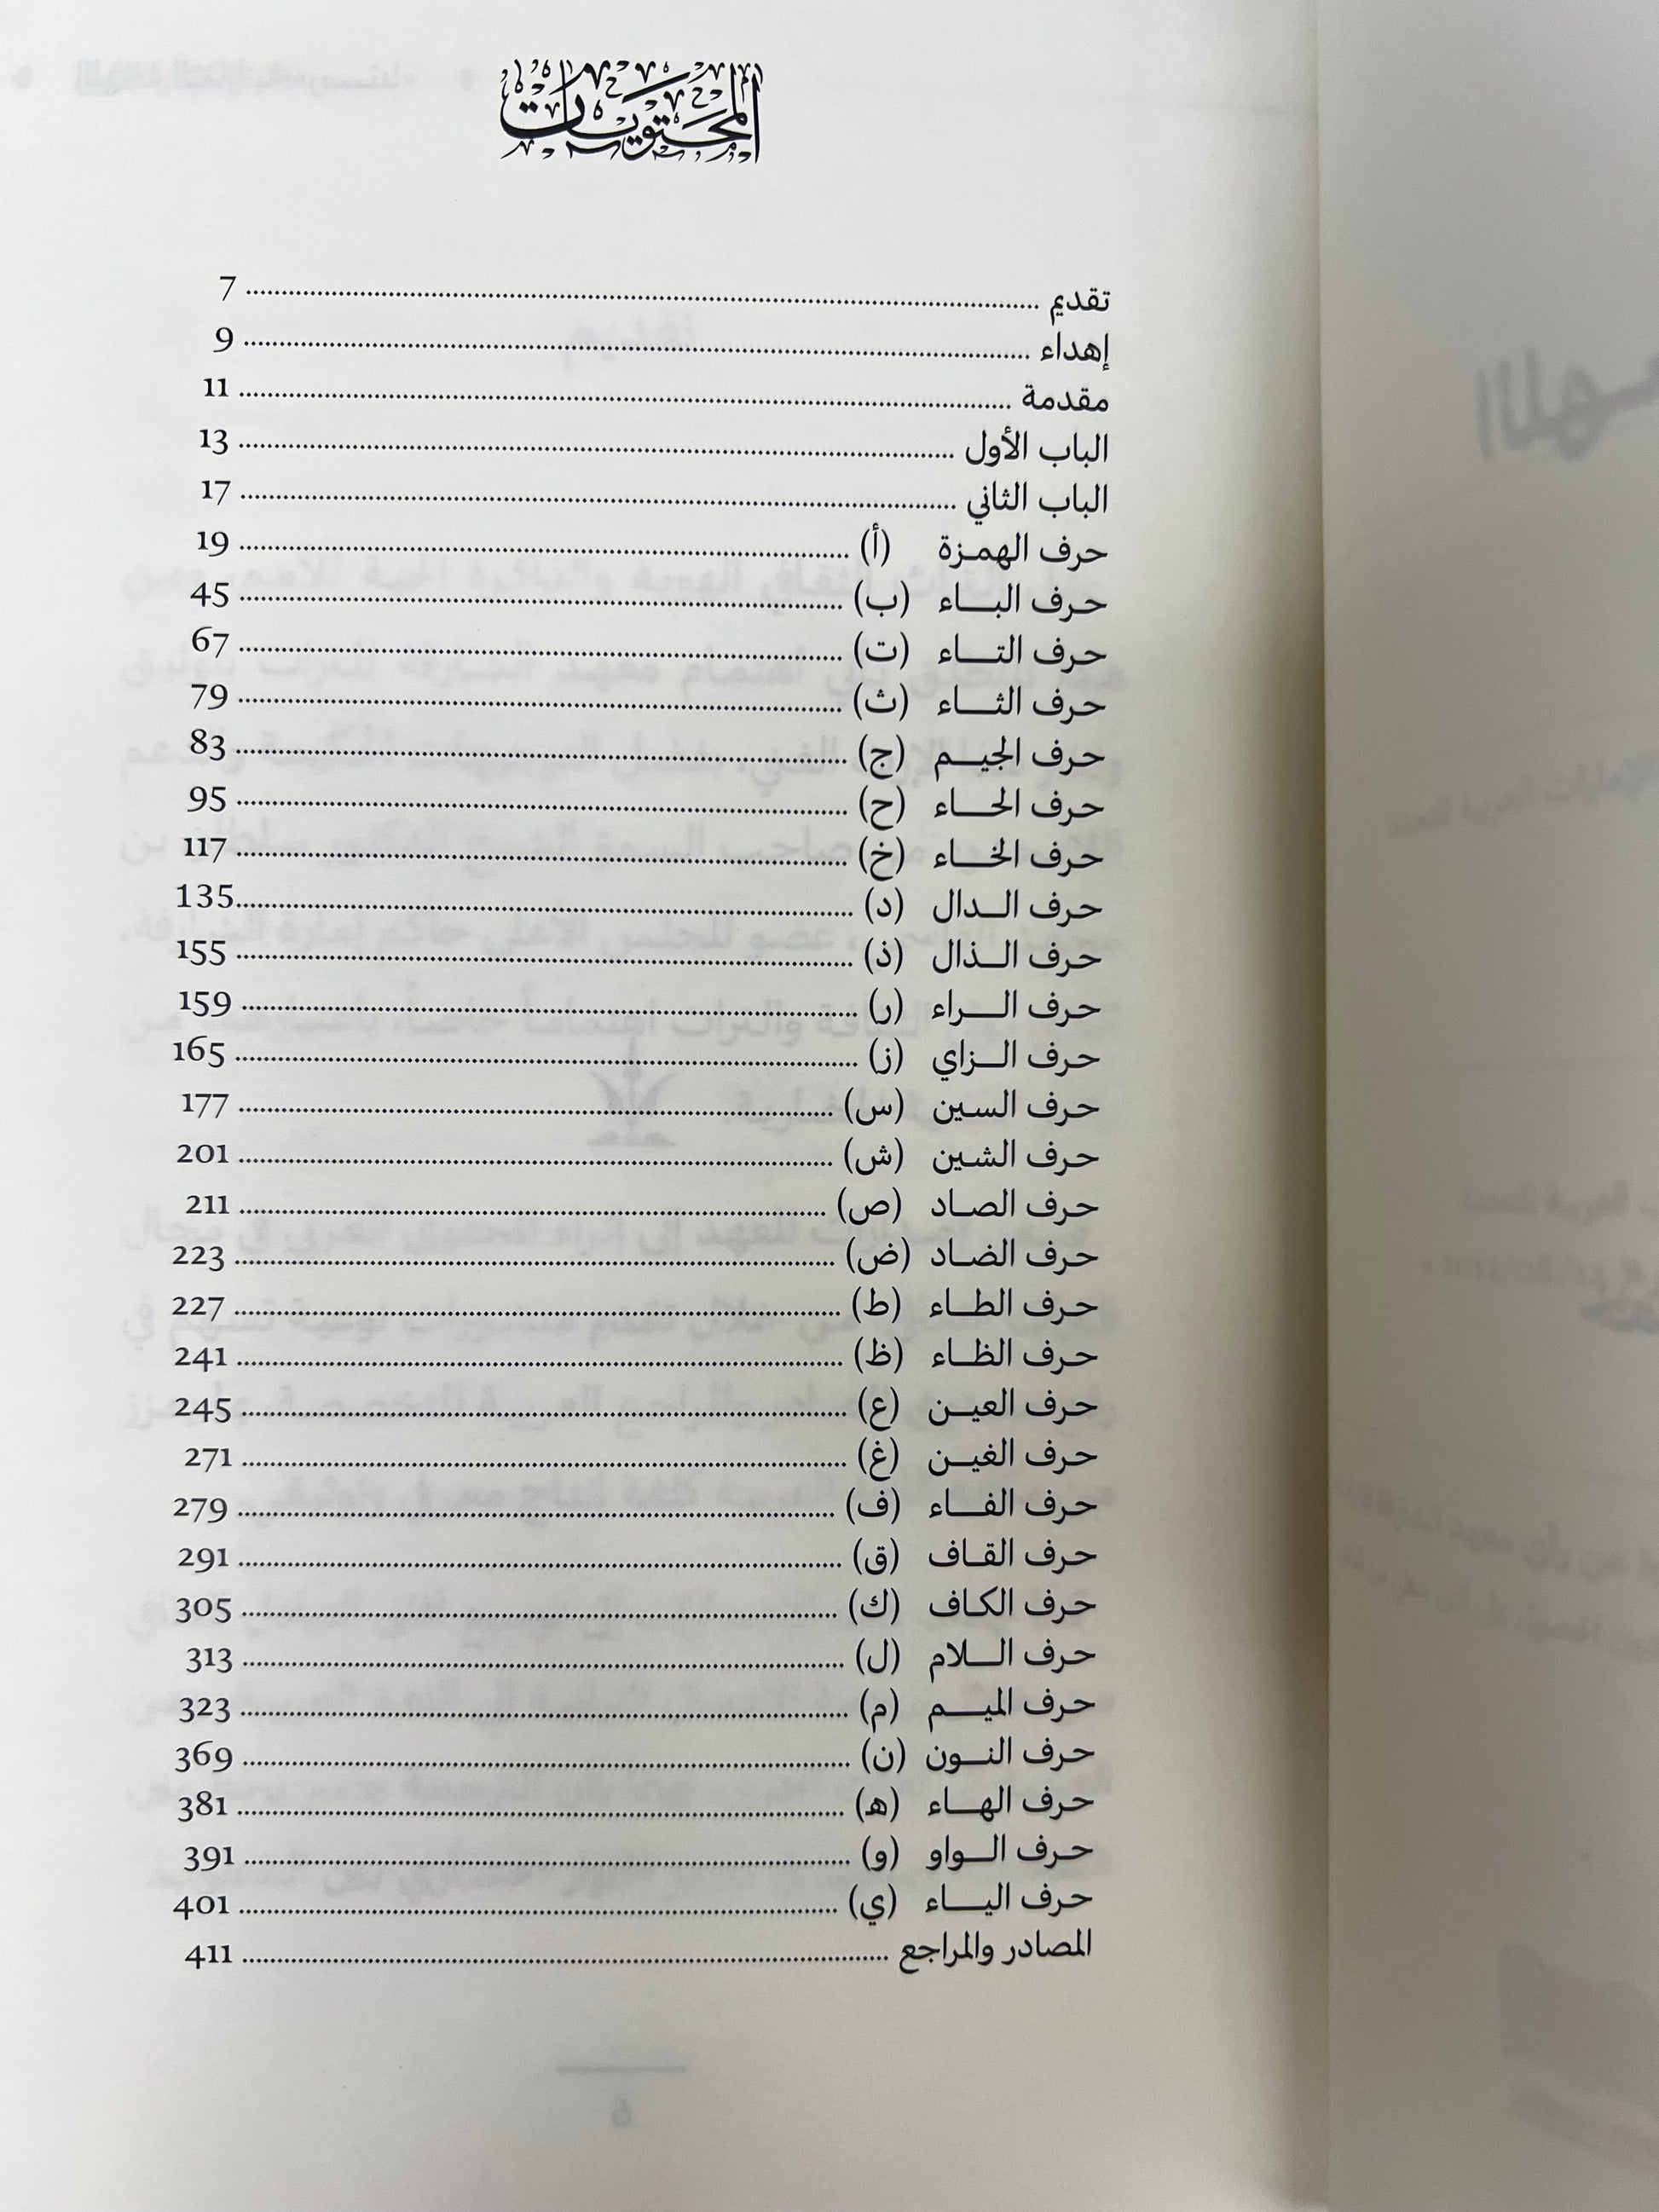 المحتويات
تقديم ........ 7
إهداء ........ 9
مقدمة ........ 11
الباب الأول ........ 13
الباب الثاني ........ 17
حرف الهمزة (أ) ........ 19
حرف الباء (ب) ........ 45
حرف التاء (ت) ........ 67
حرف الثاء (ث) ........ 79
حرف الجيم (ج) ........ 83
حرف الحاء (ح) ........ 95
حرف الخاء (خ) ........ 117
حرف الدال (د) ........ 135
حرف الذال (ذ) ........ 155
حرف الراء (ر) ........ 159
حرف الزاي (ز) ........ 165
حرف السين (س) ........ 177
حرف الشين (ش) ........ 201
حرف الصاد (ص) ........ 211
حرف الضاد (ض) ........ 223
حرف الطاء (ط) ........ 227
حرف الظاء (ظ) ........ 241
حرف العين (ع) ........ 245
حرف الغين (غ) ........ 271
حرف الفاء (ف) ........ 279
حرف القاف (ق) ........ 291
حرف الكاف (ك) ........ 305
حرف اللام (ل) ........ 313
حرف الميم (م) ........ 323
حرف النون (ن) ........ 369
حرف الهاء (ه) ........ 381
حرف الواو (و) ........ 391
حرف الياء (ي) ........ 401
المصادر والمراجع ........ 411